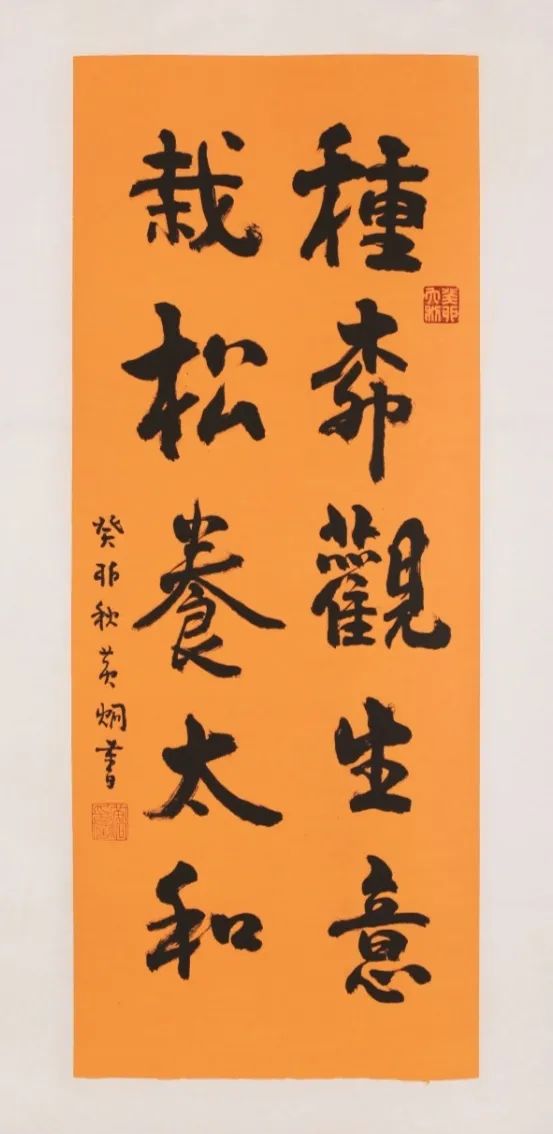 種柳觀生意
栽松養太和
癸卯秋黄炯書